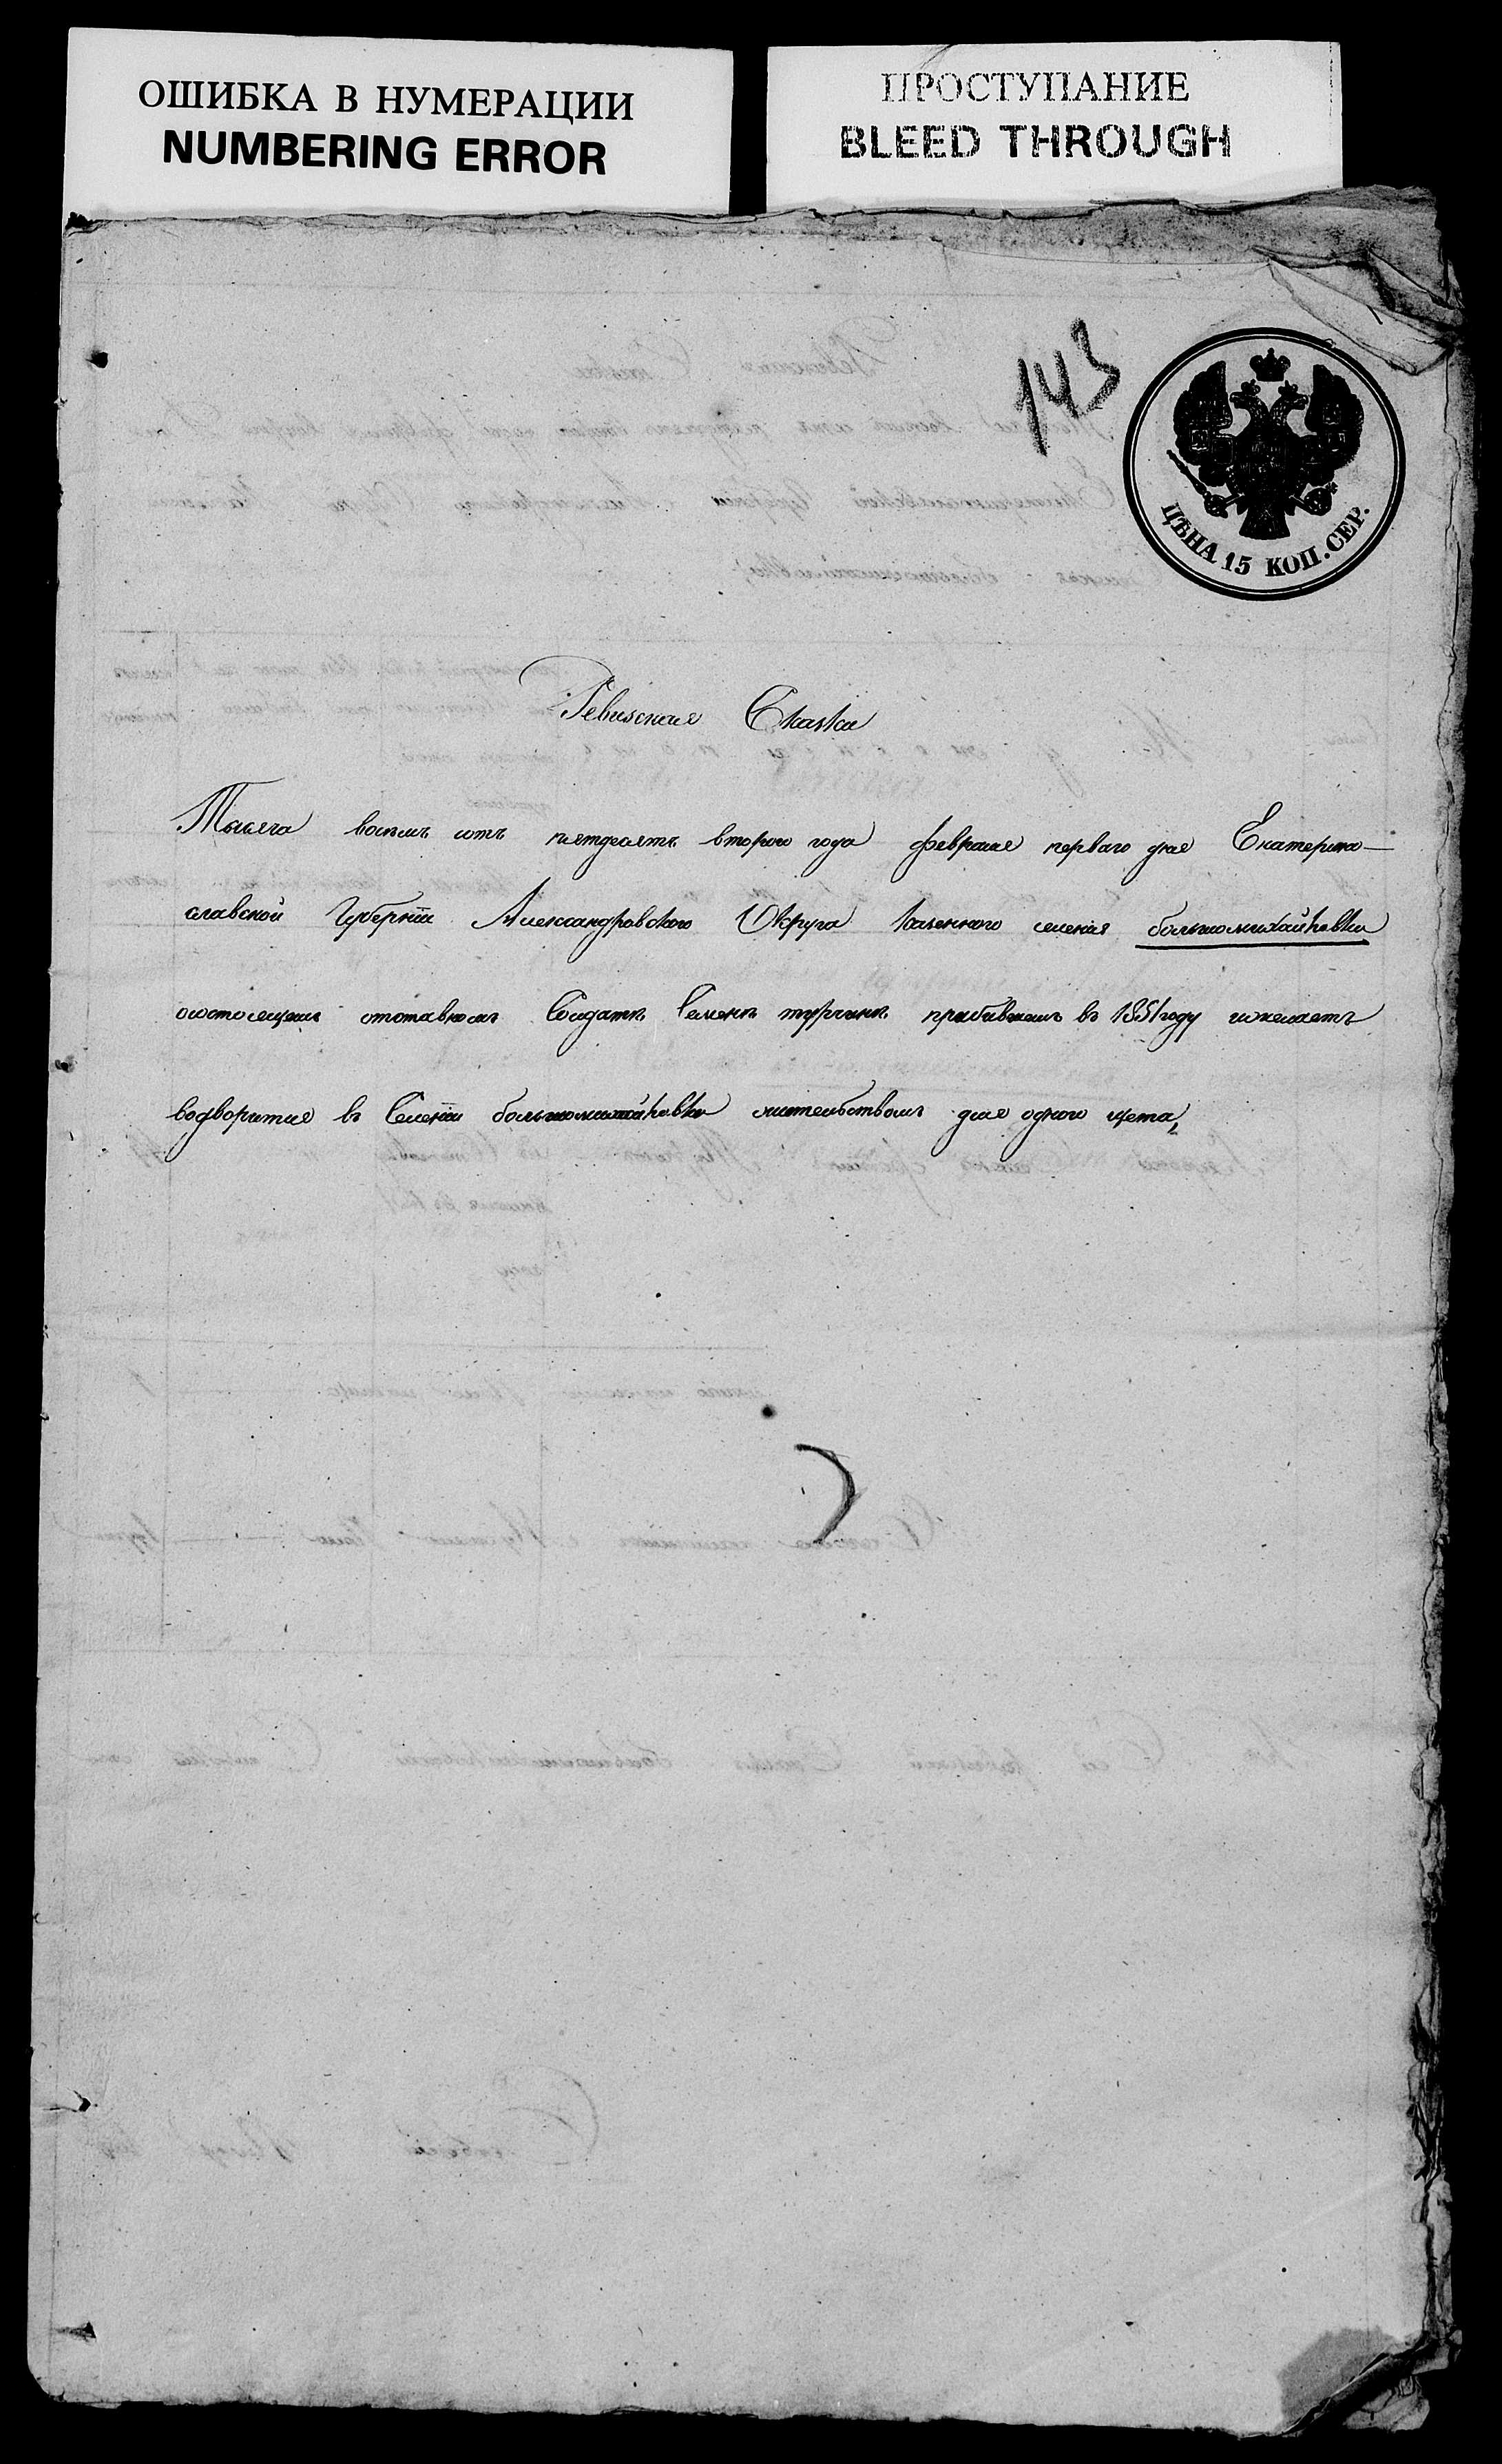 ОШИБКА В НУМЕРАЦИИ
NUMBERING ERROR
ПРОСТУПАНИЕ
BLEED THROUGH
143
ЦѢНА 15 КОП. СЕР.
Ревизская Сказка
Тысяча восемь сотъ пятдесятъ второго года февраля перваго дня Екатерино-
славской Губерніи Александровского Округа Казенного селенія большомихайловки
отставномъ Солдатѣ Семенѣ турчинѣ прибившемъ въ 1851 году и желаетъ
водворится въ Селеніи большомихайловки жительствомъ для одного щета,